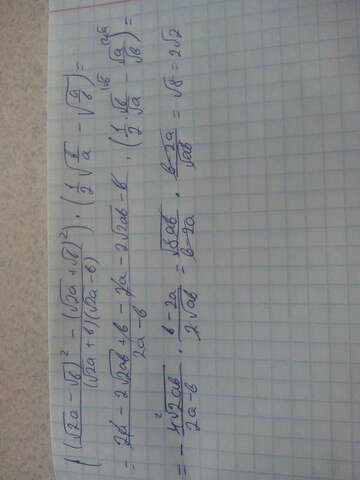 ( ((√2a - √b)² - (√2a + √b)²) / ((√2a + b)(√2a - b)) ) · ( 1/2 √(b/a) - √(a/b) ) =
= (2a - 2√2ab + b - 2a - 2√2ab - b) / (2a - b) · ( 1/2 √b/√a - √a/√b ) =
= - 4√2ab / (2a - b) · (b - 2a) / (2√ab) = √8ab / (b - 2a) · (b - 2a) / √ab = √8 = 2√2